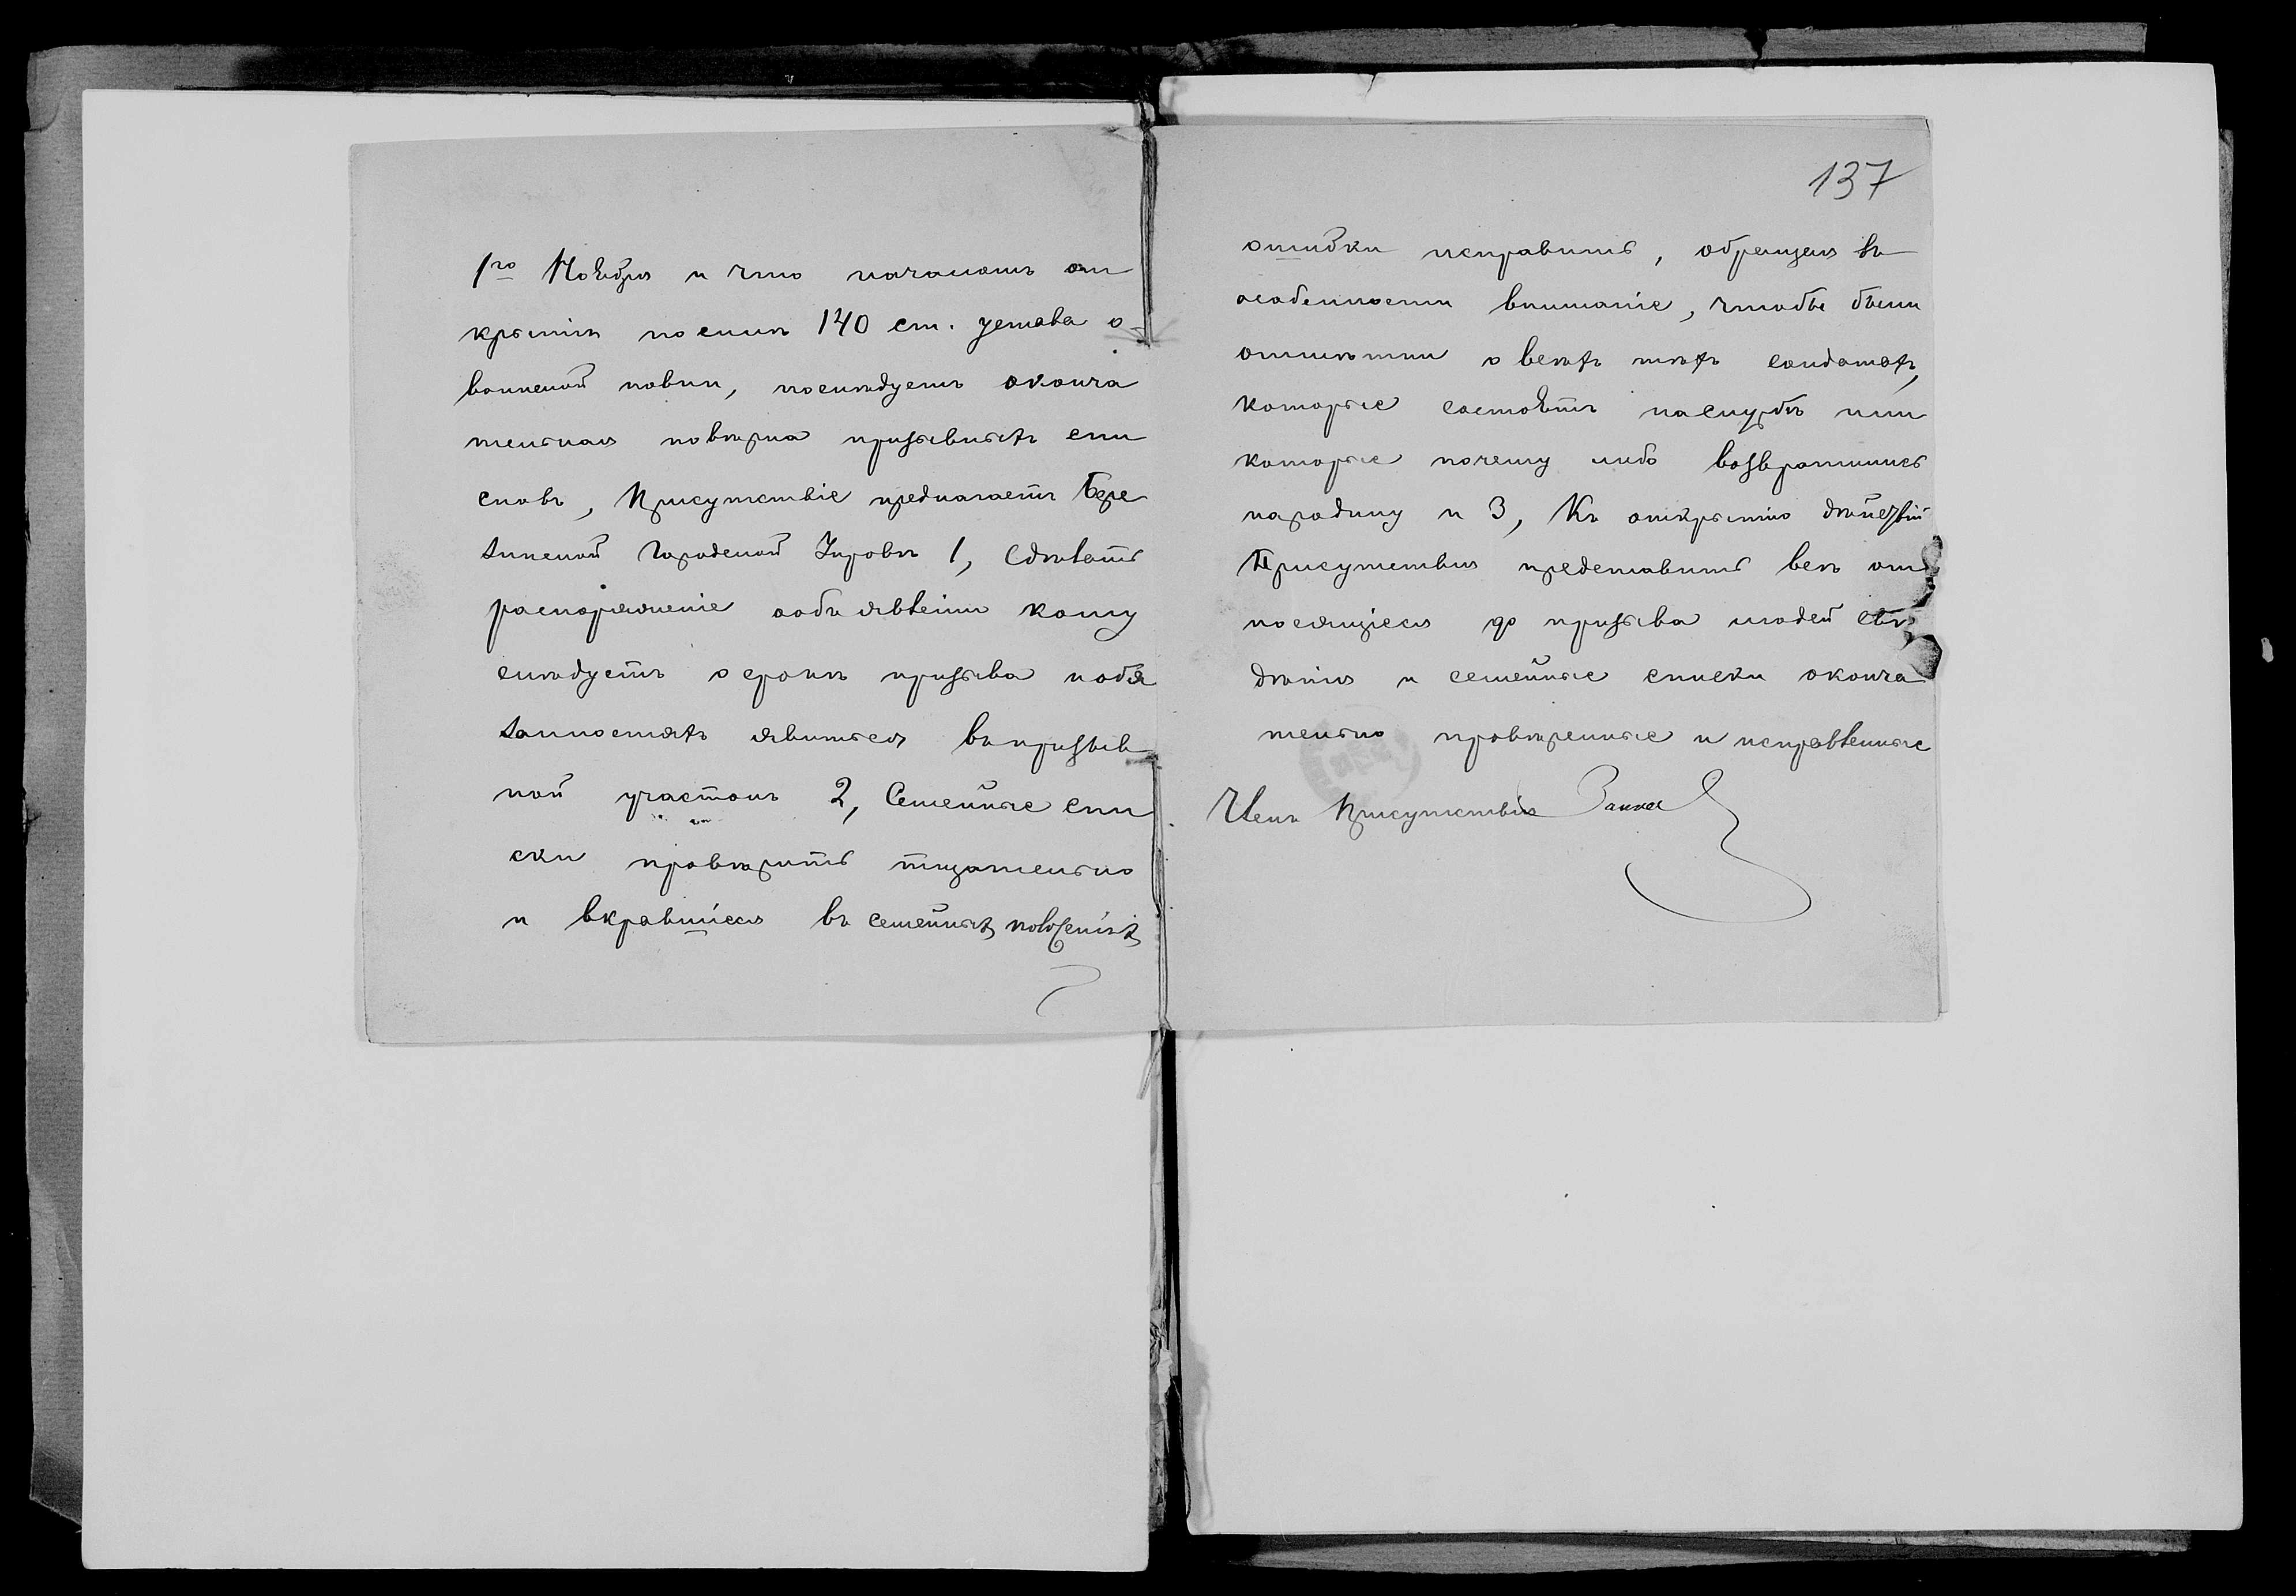 1го Ноября и что началомъ от
крытія по силѣ 140 ст. устава о
воинской повин, послѣдуетъ оконча
тельная повѣрка призывныхъ спи
сковъ, Присутствіе предлагаетъ Бере
зинской Городской Управѣ 1, Сдѣлать
распоряженіе объявленіи кому
слѣдуетъ о срокѣ призыва и обя
занностяхъ явиться въ призыв
ной участокъ 2, Семейные спи
ски провѣрить тщательно
и вкравшіеся въ семейныхъ положеніяхъ
137
ошибки исправить, обращая въ
особенности вниманіе, чтобы были
отмѣтки о всѣхъ тѣхъ солдатахъ,
которые состоятъ на службѣ или
которые почему либо возвратились
на родину и 3, Къ открытію дѣйствій
Присутствія представить всѣ от
носящіеся до призыва людей свѣ
дѣнія и семейные списки оконча
тельно провѣренные и исправленные
Членъ Присутствія